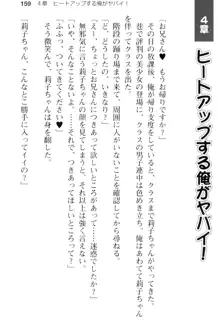 159　4章　ヒートアップする俺がヤバイ！
4章
ヒートアップする俺がヤバイ！
「お兄さん♥　もうお帰りですか？」
その日の放課後、俺が帰り支度をしていると、クラスまで莉子ちゃんがやってきた。
評判の美少女の登場に、クラスの男子連中は色めき立ち、俺は慌てて莉子ちゃん
を伴って
階段の踊り場まできて、周囲に人がいないのを確認してから尋ねる。
「ど、どうしたの、いったい？」
「えー、ちょっとお兄さんにつきあって欲しいところがあって……迷惑でしたか？」
無邪気に言う莉子ちゃんの顔を見てしまうと、それ以上は強く言えない。
「いや、そんなことないけど……つきあってほしいところって？」
「ふふっ、ついてきてください♥」
そう微笑んで、莉子ちゃんは身を翻した。
「り、莉子ちゃん、こんなとこ勝手に入ってイイの？」